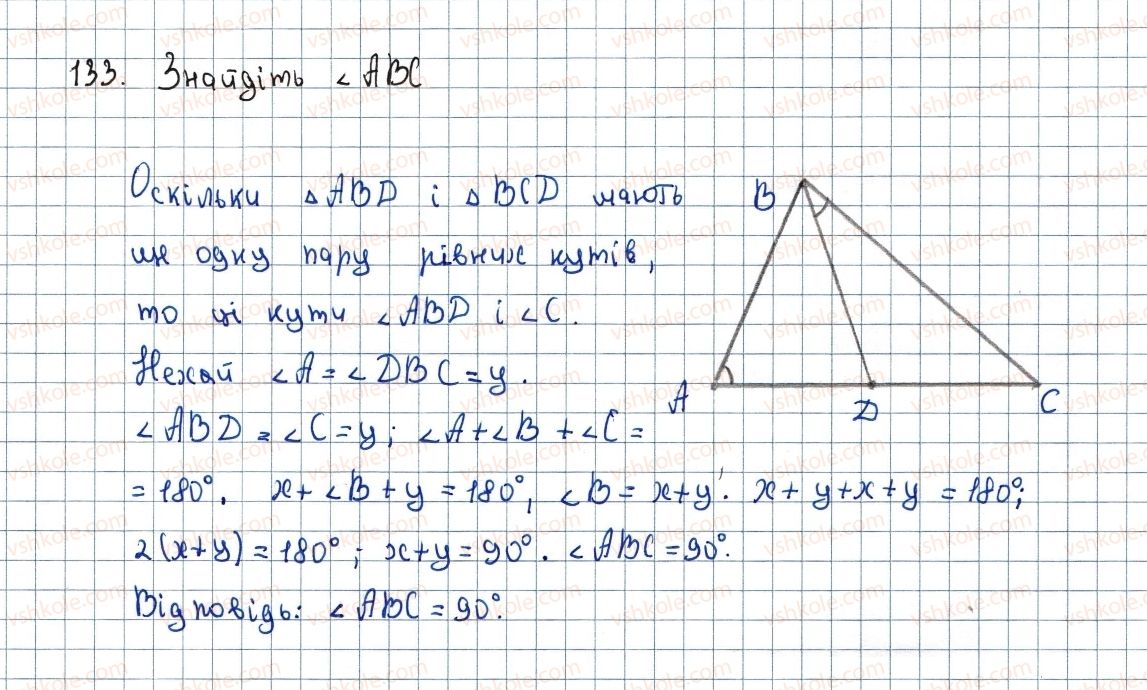 133. Знайдіть ∠ABC
Оскільки △ABD і △BCD мають
ще одну пару рівних кутів,
то ці кути ∠ABD і ∠C.
Нехай ∠A = ∠DBC = y.
∠ABD = ∠C = y; ∠A + ∠B + ∠C =
= 180°. x + ∠B + y = 180°, ∠B = x + y. x + y + x + y = 180°;
2(x + y) = 180°; x + y = 90°. ∠ABC = 90°.
Відповідь: ∠ABC = 90°.
B
A
D
C
vshkole.com